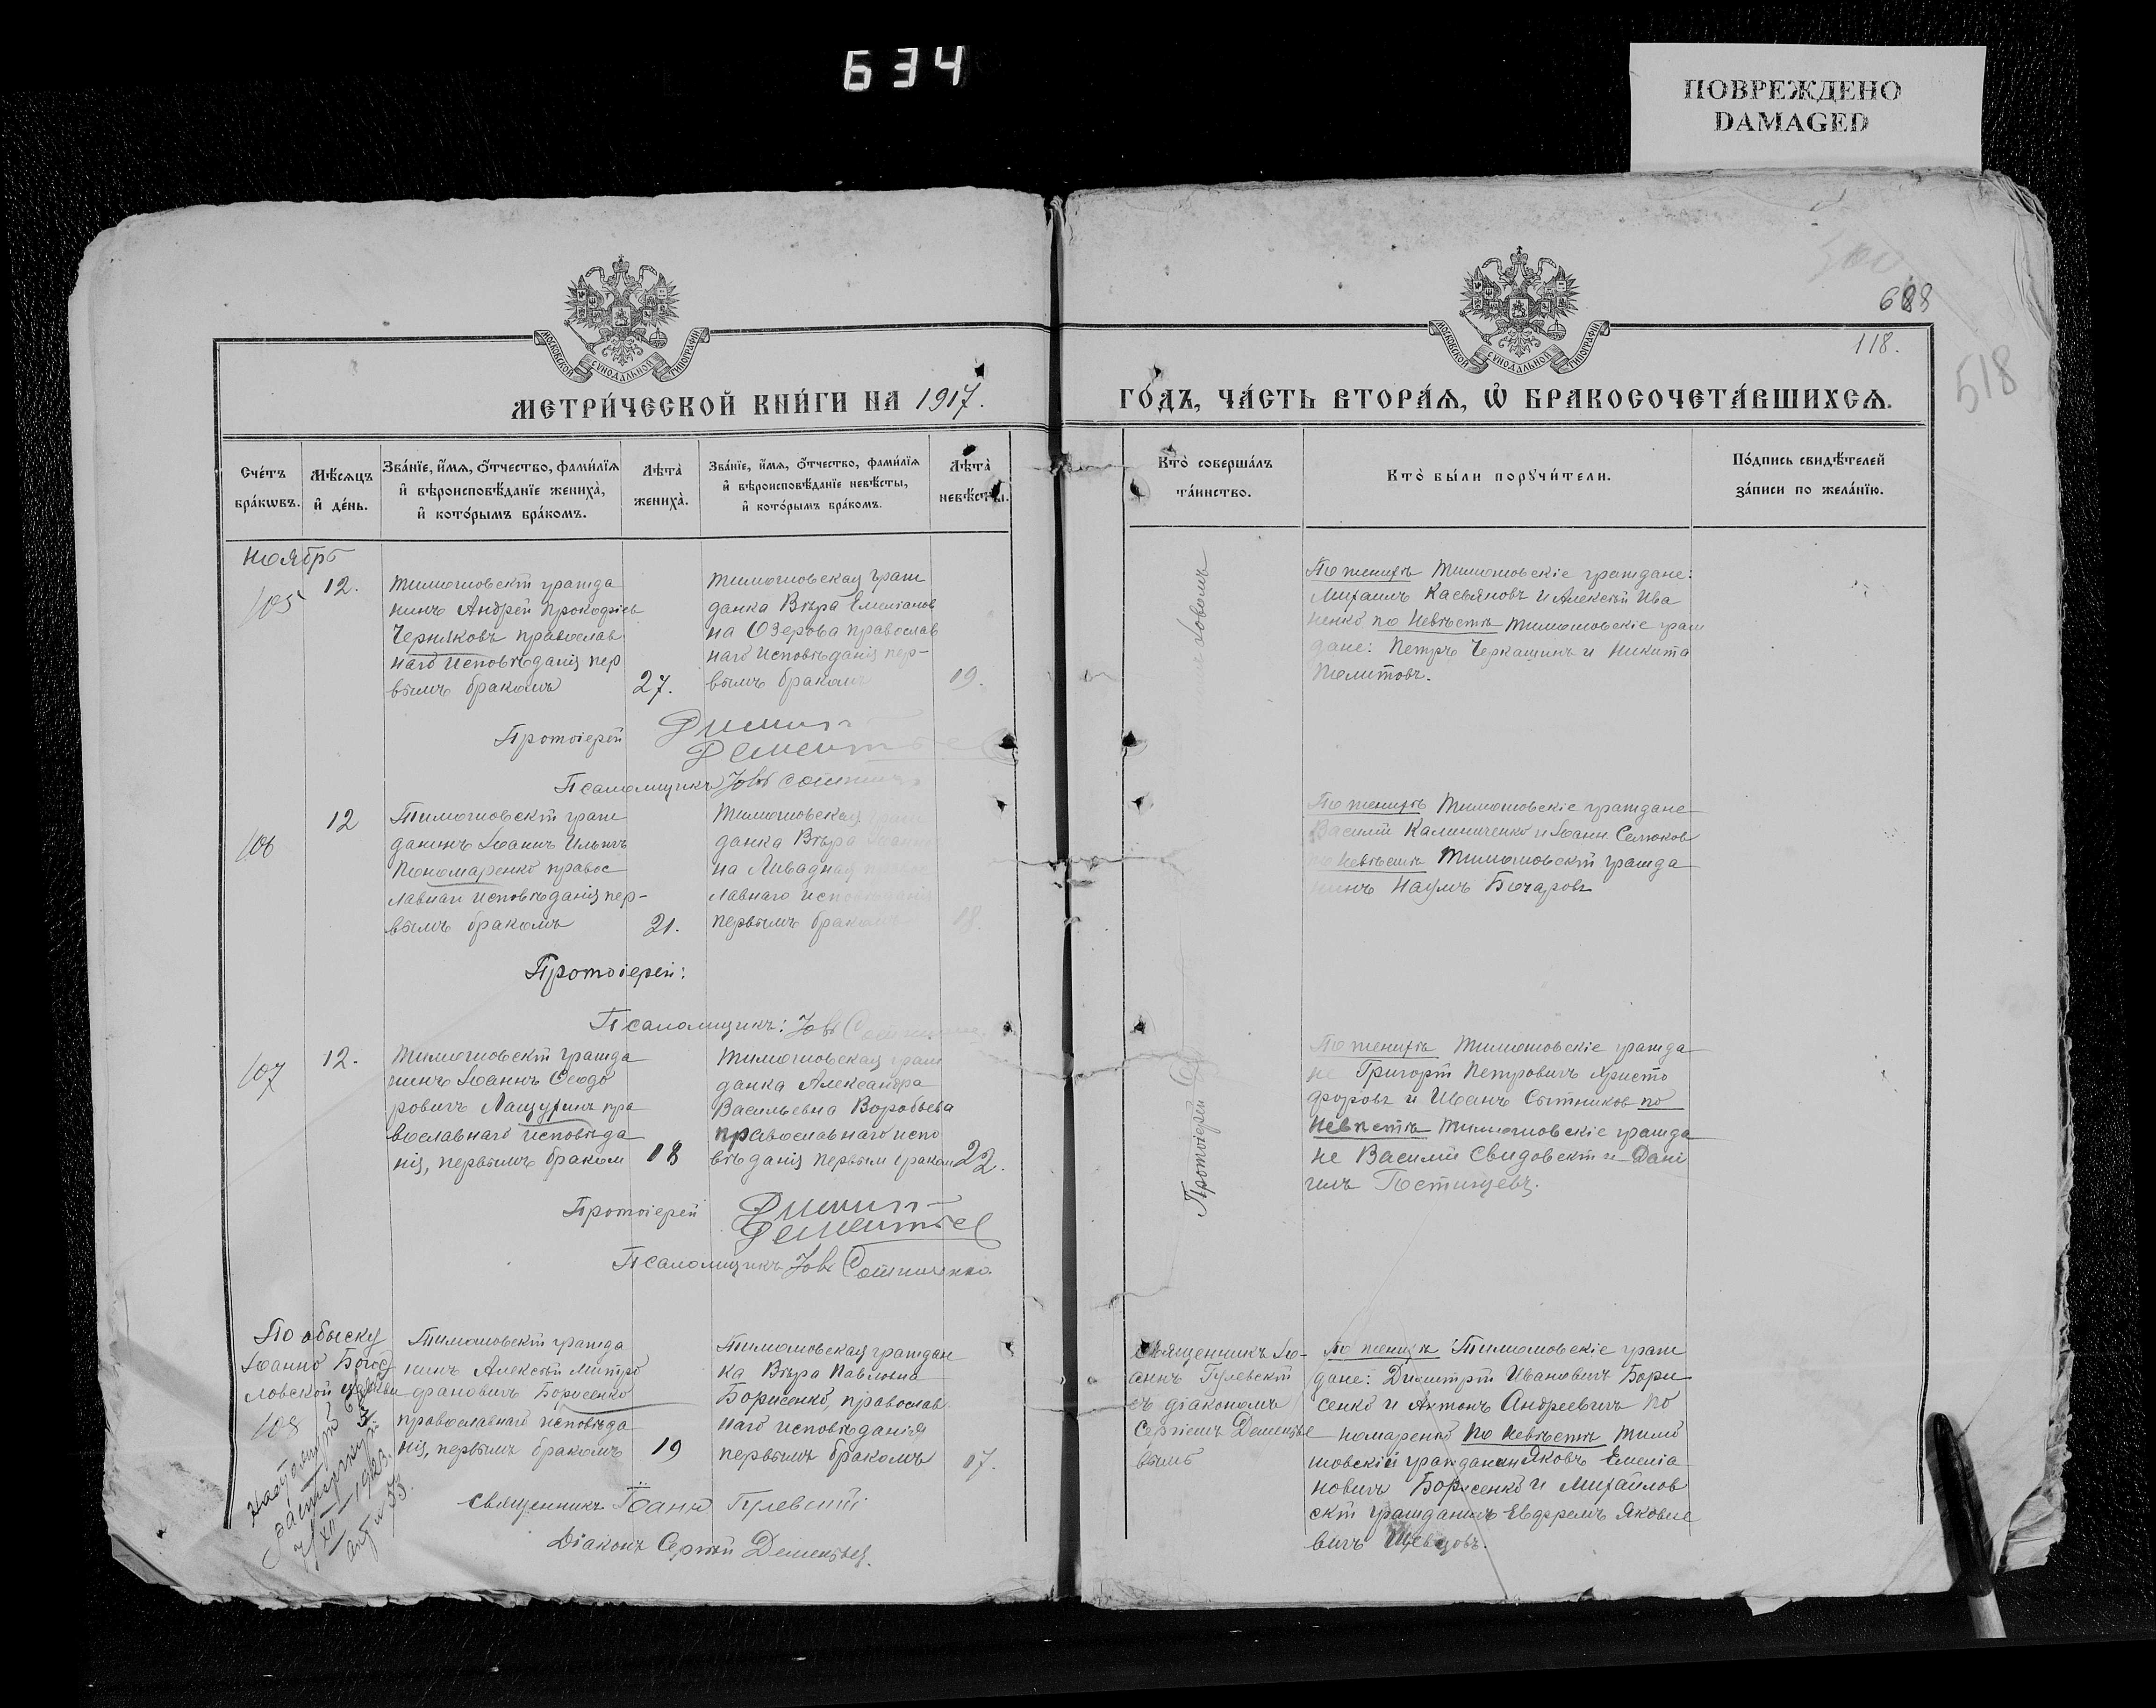 634
ПОВРЕЖДЕНО
DAMAGED
688
118.
518
МОСКОВСКОЙ СѴНОДАЛЬНОЙ ТИПОГРАФІИ
МОСКОВСКОЙ СѴНОДАЛЬНОЙ ТИПОГРАФІИ
МЕТРИ́ЧЕСКОЙ КНИ́ГИ НА 1917.
ГО́ДЪ, ЧА́СТЬ ВТОРА́Ѧ, Ѽ БРАКОСОЧЕТА́ВШИХСѦ.
Сче́тъ
бра́кѡвъ.
Мѣ́сѧцъ
и҆ де́нь.
Зва́нїе, и҆́мѧ, ѻ҆́тчество, фами́лїѧ
и҆ вѣроисповѣ́данїе жениха̀,
и҆ кото́рымъ бра́комъ.
Лѣта̀
жениха̀.
Зва́нїе, и҆́мѧ, ѻ҆́тчество, фами́лїѧ
и҆ вѣроисповѣ́данїе невѣ́сты,
и҆ кото́рымъ бра́комъ.
Лѣта̀
невѣ́сты.
Кто̀ соверша́лъ
та́инство.
Кто̀ бы́ли порꙋчи́тели.
По́дпись свидѣ́телей
за́писи по жела́нїю.
Ноябрь
105
12.
Тимошовскій гражда
нинъ Андрей Прокофіев
Черняковъ православ
наго исповѣданія пер
вымъ бракомъ
27.
Тимошовская граж
данка Вѣра Емеліанов
на Озерова православ
наго исповѣданія пер-
вымъ бракомъ
19.
По женихѣ Тимошовскіе граждане:
Михаилъ Касьяновъ и Алексѣй Ива
ненко по невѣстѣ Тимошовскіе граж
дане: Петръ Черкашинъ и Никита
Политовъ.
Протоіерей Димит
Дементье
Псаломщикъ Іовъ Сотнич
106
12
Тимошовскій граж
данинъ Іоаннъ Ильичъ
Пономаренко правос
лавнаго исповѣданія пер-
вымъ бракомъ
21.
Тимошовская граж
данка Вѣра Іоанно
на Ливадная п
лавнаго исповѣданія
первымъ бракомъ
18.
По женихѣ Тимошовскіе граждане
Василій Калиниченко и Іоанн Селюков
по невѣстѣ Тимошовскій гражда
нинъ Наумъ Бочаровъ
Протоіерей:
Псаломщикъ: Іовъ Сотниченко
107
12.
Тимошовскій гражда
нинъ Іоаннъ Ѳеодо
ровичъ Лащухинъ пра
вославнаго исповѣда
нія, первымъ браком
18
Тимошовская граж
данка Александра
Васильевна Воробьева
православнаго испо
вѣданія первым браком
22.
По женихѣ Тимошовскіе гражда
не Григорій Петровичъ Христо
форовъ и Иванъ Сытников по
невѣстѣ Тимошовскіе гражда
не Василій Свидовскій и Дані
илъ Гостищевъ.
Протоіерей Димит
Дементьев
Псаломщикъ Іовъ Сотниченко.
Протоіерей
По обыску
Іоанно Богос
ловской церкви
108
Тимошовскій гражда
нинъ Алексѣй Митро
фановичъ Борисенко
православнаго исповѣда
нія, первымъ бракомъ
19
Тимошовская граждан
ка Вѣра Павловна
Борисенко, православ
наго исповѣданія
первымъ бракомъ
17.
Священникъ Іо-
аннъ Гулевскій
съ діакономъ
Сергіемъ Дементье
вымъ
По женихѣ Тимошовскіе граж
дане: Димитрій Ивановичъ Бори
сенко и Антонъ Андреевичъ По
номаренко по невѣстѣ Тимо
шовскій гражданинъ Яковъ Емеліа
новичъ Борисенко и Михайлов
скій гражданинъ Евфремъ Яковле
вичъ Шевцовъ.
Священникъ Іоаннъ Гулевскій
Діаконъ Сергій Дементьев.
1923.